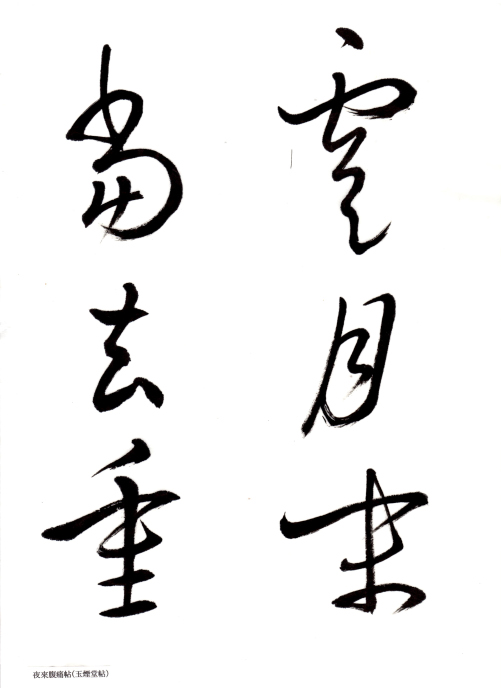 虞月末
當去重
夜來腹痛帖(玉煙堂帖)